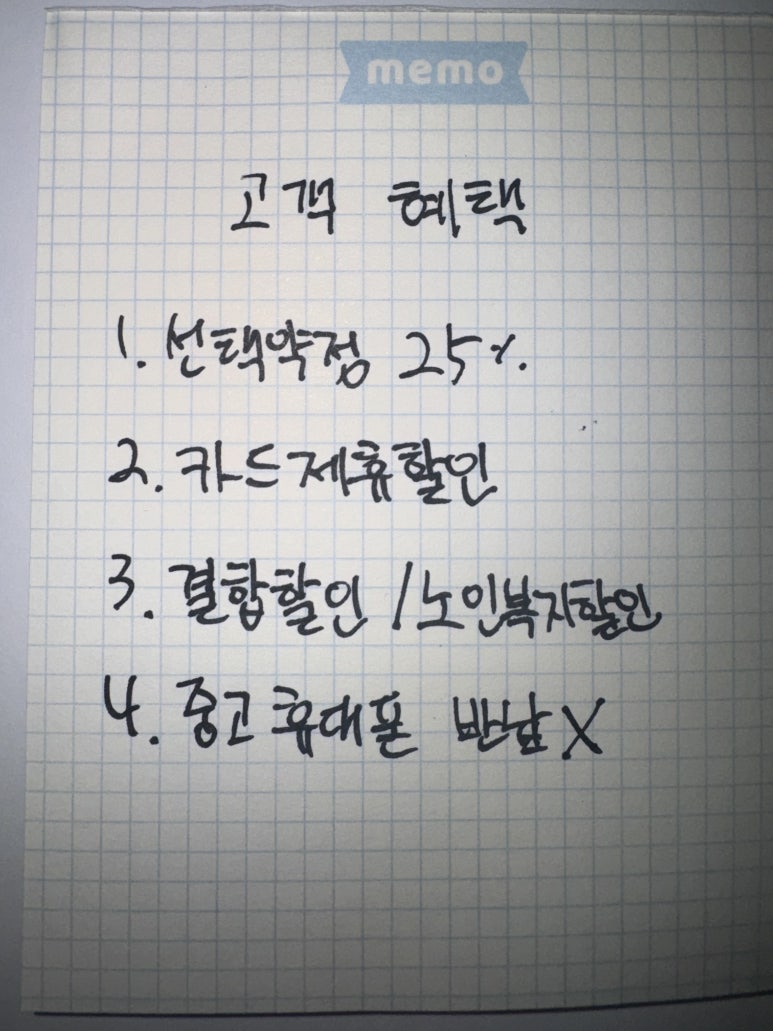 memo
고객 혜택
1. 선택약정 25%.
2. 카드제휴할인
3. 결합할인 / 노인복지할인
4. 중고휴대폰 반납X